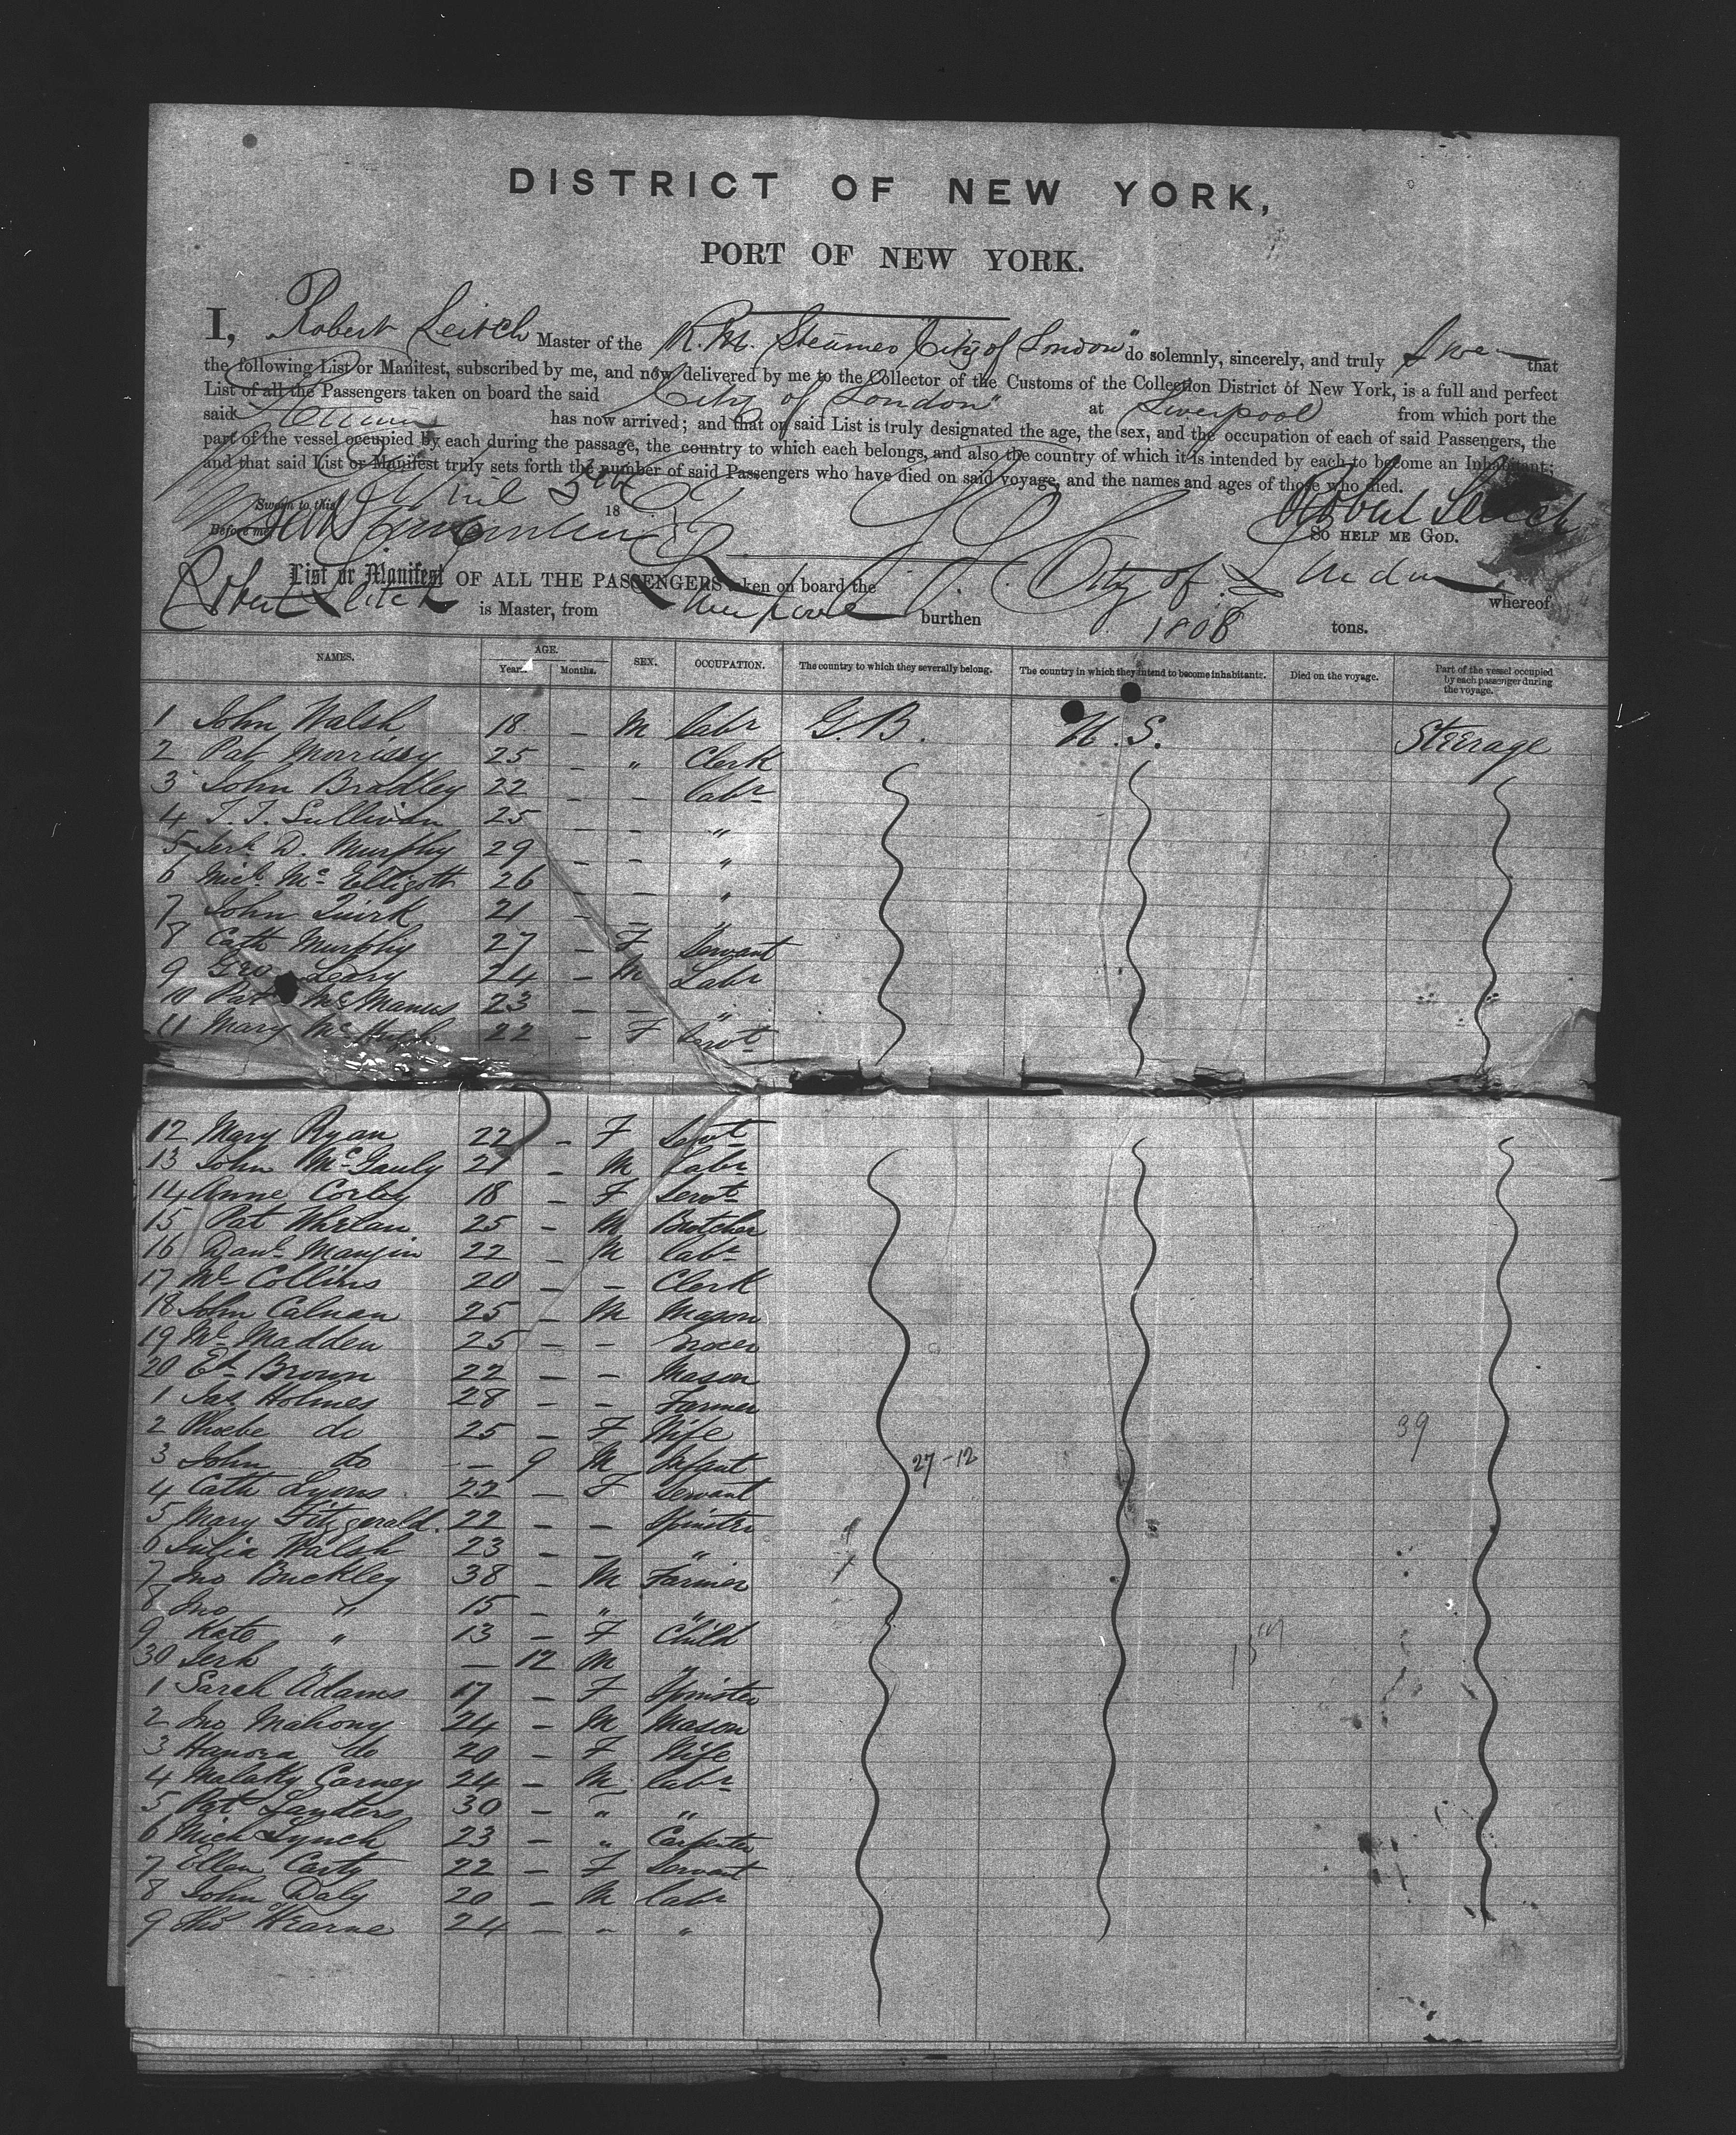 DISTRICT OF NEW YORK,
PORT OF NEW YORK.
I, Robert Leitch Master of the R.M. Steamer "City of London" do solemnly, sincerely, and truly Swear that
the following List or Manifest, subscribed by me, and now delivered by me to the Collector of the Customs of the Collection District of New York, is a full and perfect
List of all the Passengers taken on board the said "City of London" at Liverpool from which port the
said Steamer has now arrived; and that on said List is truly designated the age, the sex, and the occupation of each of said Passengers, the
part of the vessel occupied by each during the passage, the country to which each belongs, and also the country of which it is intended by each to become an Inhabitant;
and that said List or Manifest truly sets forth the number of said Passengers who have died on said voyage, and the names and ages of those who died.
Sworn to this April 18 Robert Leitch
Before me SO HELP ME GOD.
List or Manifest OF ALL THE PASSENGERS taken on board the City of London whereof
Robert Leitch is Master, from Liverpool burthen 1808 tons.
NAMES. AGE. Years. Months. SEX. OCCUPATION. The country to which they severally belong. The country in which they intend to become inhabitants. Died on the voyage. Part of the vessel occupied by each passenger during the voyage.
1 John Walsh 18 - M labr G.B. U.S. Steerage
2 Pat Morrissy 25 - " Clerk
3 John Bradley 22 - - labr
4 T. J. Sullivan 25 - - "
5 Jerh D. Murphy 29 - - "
6 Michl McElligott 26 - - "
7 John Quirk 21 - - "
8 Cath Murphy 27 - F Servant
9 Geo Leary 24 - M Labr
10 Pat McManus 23 - - "
11 Mary McHugh 22 - F Servt
12 Mary Ryan 22 - F Servt
13 John McGauly 21 - M labr
14 Anne Corley 18 - F Servt
15 Pat Whelan 25 - M Butcher
16 Danl Mangin 22 - M labr
17 Mc Collins 20 - - Clerk
18 John Calnan 25 - M Mason
19 Mc Madden 25 - - Grocer
20 Ed Brown 22 - - Mason
1 Jas Holmes 28 - - Farmer
2 Phoebe do 25 - F Wife
39
3 John do - 9 M Infant
27-12
4 Cath Lyons 22 - F Servant
5 Mary Fitzgerald 22 - - Spinster
6 Julia Walsh 23 - - "
7 Jno Buckley 38 - M Farmer
8 Jno " 15 - " "
9 Kate " 13 - F Child
30 Jerh " - 12 M "
1 Sarah Adams 17 - F Spinster
2 Jno Mahony 24 - M Mason
3 Hanora do 20 - F Wife
4 Malatky Carney 24 - M labr
5 Pat Landers 30 - " "
6 Mich Lynch 23 - " Carpenter
7 Ellen Carty 22 - F Servant
8 John Daly 20 - M labr
9 Thos Hearne 24 - " "